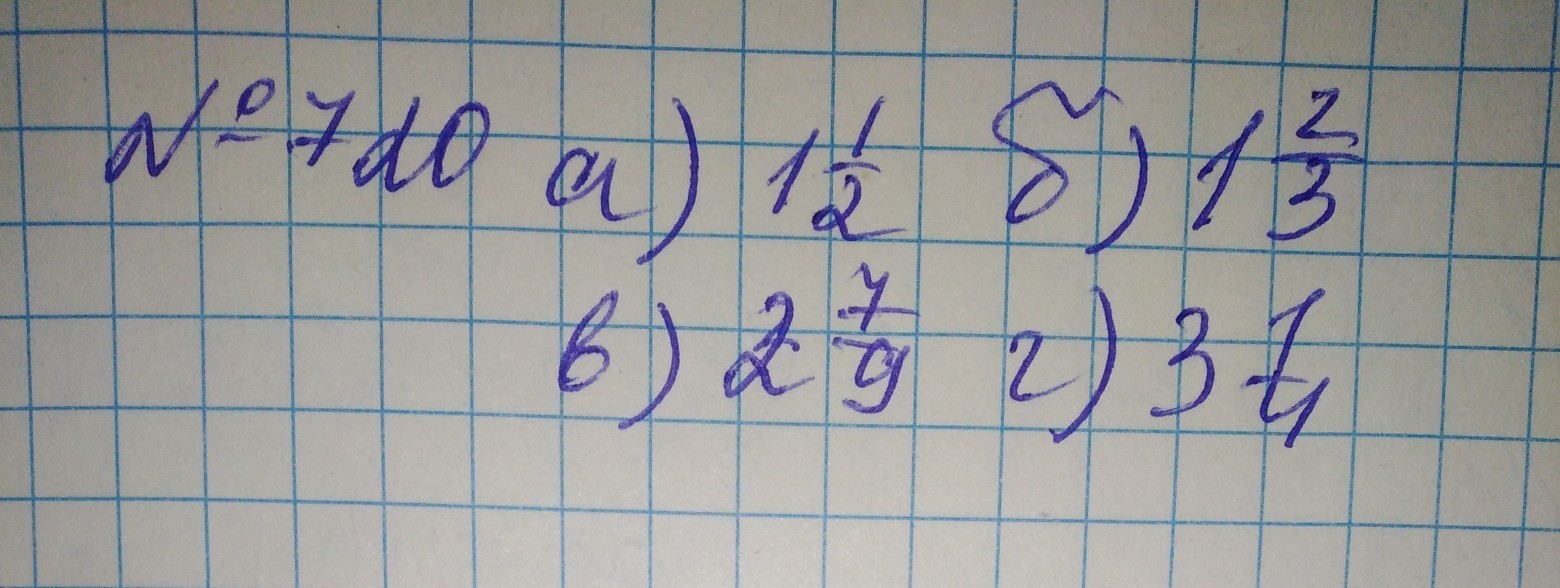 № 720 а) 1 1/2 б) 1 2/3
в) 2 7/9 г) 3 1/4